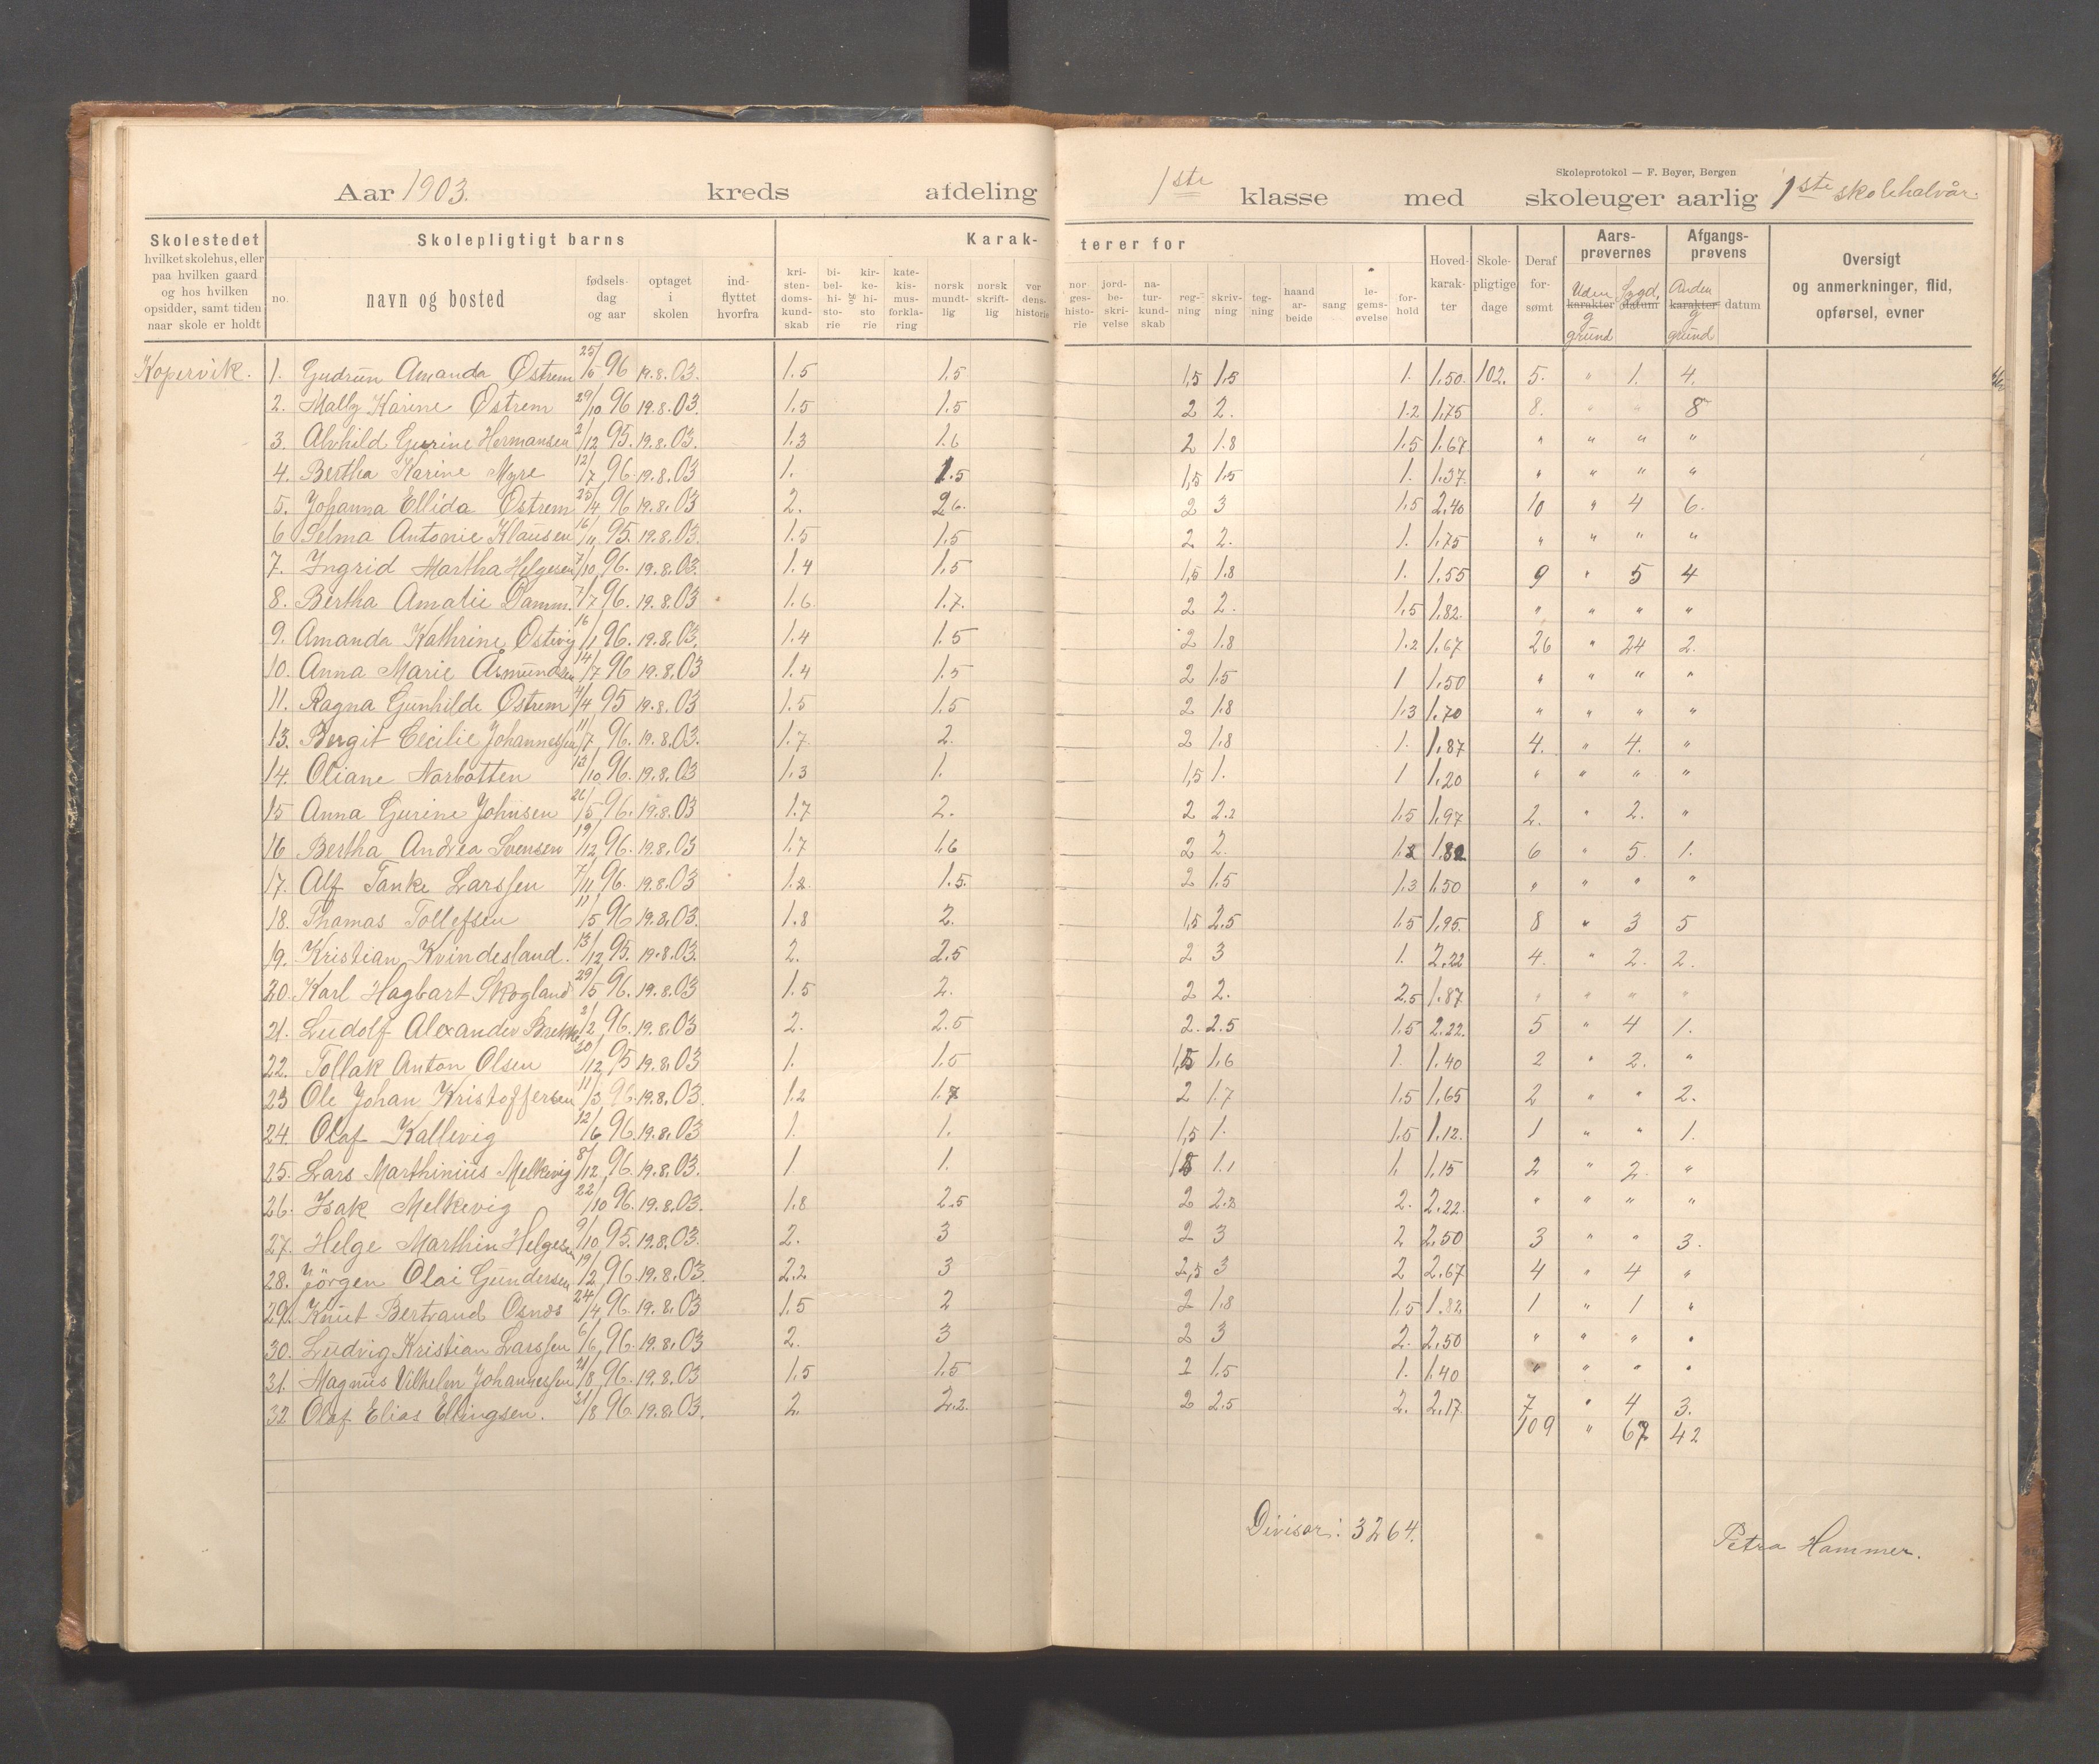 Skoleprotokol — F. Beyer, Bergen
Aar 1903. kreds afdeling 1ste klasse med skoleuger aarlig 1ste skolehalvår.
Skolestedet hvilket skolehus, eller paa hvilken gaard og hos hvilken opsidder, samt tiden naar skole er holdt
Skolepligtigt barns
no. navn og bosted fødsels-dag og aar optaget i skolen ind-flyttet hvorfra
Karak- terer for
kri-sten-doms-kund-skab bi-bel-hi-sto-rie og kir-ke-hi-sto-rie kate-kis-mus-forkla-ring norsk mundt-lig norsk skrift-lig ver dens-historie
nor ges-histo-rie jord-be-skri-velse na-tur-kund-skab reg-ning skriv-ning teg-ning haand ar-beide sang le-gems-øvelse for-hold
Hoved-karak-ter Skole-pligtige dage Deraf for-sømt
Aars-prøvernes karakter datum Uden g grund Sygd.
Afgangs-prøvens karakter datum Anden g grund
Oversigt og anmerkninger, flid, opførsel, evner
Kopervik. 1. Gudrun Amanda Østrem 25/5 96 19.8.03. 1.5 1.5 1,5 1.5 1. 1.50. 102. 5. " 1. 4.
2. Mally Karine Østrem 29/10 96 19.8.03. 1.5 1.5 2 2. 1.2 1.75 8. " " 8
3. Alvhild Gurine Hermansen 2/12 95. 19.8.03. 1.3 1.6 2 1.8 1.5 1.67. " " " "
4. Bertha Karine Myre 12/7 96. 19.8.03 1. 1.5 1,5 1.5 1. 1.37. " " " "
5. Johanna Ellida Østrem 25/4 96 19.8.03 2. 2.6. 2 3 1.5 2.40 10 " 4 6.
6 Selma Antonie Klausen 16/11 95. 19.8.03. 1.5 1.5 2 2. 1. 1.75 " " " "
7. Ingrid Martha Helgesen 7/10 96. 19.8.03. 1.4 1.5 1,5 1.8 1. 1.55 9 " 5 4
8. Bertha Amalie Damm. 7/7 96. 19.8.03 1.6. 1.7. 2 2. 1.5 1.82. " " " "
9. Amanda Kathrine Østvig 16/1 96. 19.8.03. 1.4 1.5 2 1.8 1.2 1.67 26 " 24 2.
10. Anna Marie Asmundsen 14/7 96 19.8.03 1.4 1.5 2 1.5 1 1.50 " " " "
11. Ragna Gunhilde Østrem 4/4 95 19.8.03 1.5 1.5 2 1.8 1.3 1.70 " " " "
13. Bergit Cecilie Johannessen 11/7 96. 19.8.03. 1.7. 2. 2 1.8 1. 1.87 4. " 4. "
14. Oliane Norbotten 13/10 96. 19.8.03 1.3 1. 1,5 1. 1 1.20 " " " "
15 Anna Gurine Johnsen 26/5 96. 19.8.03 1.7 2. 2 2.2 1.5 1.97 2. " 2. "
16 Bertha Andrea Svensen 19/12 96. 19.8.03 1.7 1.6 2 2. 1.2 1.82 6 " 5. 1.
17. Alf Tanke Larssen 7/11 96. 19.8.03 1.2. 1.5. 2 1.5 1.3 1.50 " " " "
18. Thomas Tollefsen 11/5 96 19.8.03. 1.8 2. 1,5 2.5 1.5 1.95. 8 " 3 5
19. Kristian Kvindesland. 13/12 95. 19.8.03. 2. 2.5 2 3 1. 2.22 4. " 2. 2.
20. Karl Hagbart Skogland 29/5 96. 19.8.03 1.5 2. 2 2. 2.5 1.87 " " " "
21. Ludolf Alexander Brekke 2/2 96. 19.8.03 2. 2.5 2. 2.5 1.5 2.22. 5 " 4 1.
22. Tollak Anton Olsen 20/12 95 19.8.03 1. 1.5 1,5 1.6 1. 1.40 2 " 2. "
23 Ole Johan Kristoffersen 11/3 96. 19.8.03. 1.2 1.7 2 1.7 1.5 1.65 2 " " 2.
24. Olaf Kallevig 12/6 96. 19.8.03 1. 1. 1,5 1. 1.5 1.12. 1 " " 1.
25. Lars Marthinius Melkevig 8/12 96. 19.8.03. 1 1. 1,5 1.1 1. 1.15 2 " 2. "
26. Isak Melkevig 22/10 96. 19.8.03. 1.8 2.5 2 2.2 2. 2.22. " " " "
27. Helge Marthin Helgesen 9/10 95. 19.8.03. 2. 3 2 3 2 2.50 3 " " 3.
28. Jörgen Olai Gundersen 19/2 96. 19.8.03. 2.2 3 2,5 3 2 2.67 4 " 4 "
29. Knut Bertrand Osnæs 24/4 96. 19.8.03 1.5 2 2 1.8 1.5 1.82. 1 " 1 "
30. Ludvig Kristian Larssen 6/6 96. 19.8.03 2. 3 2 3 2. 2.50 " " " "
31. Magnus Vilhelm Johannessen 21/8 96. 19.8.03 1.5 1.5 2 1.5 1. 1.40 " " " "
32 Olaf Elias Ellingsen. 31/8 96. 19.8.03. 2. 2.2. 2 2.5 2. 2.17. 7 " 4 3.
109 " 67 42
Divisor: 3264.
Petra Hammer.